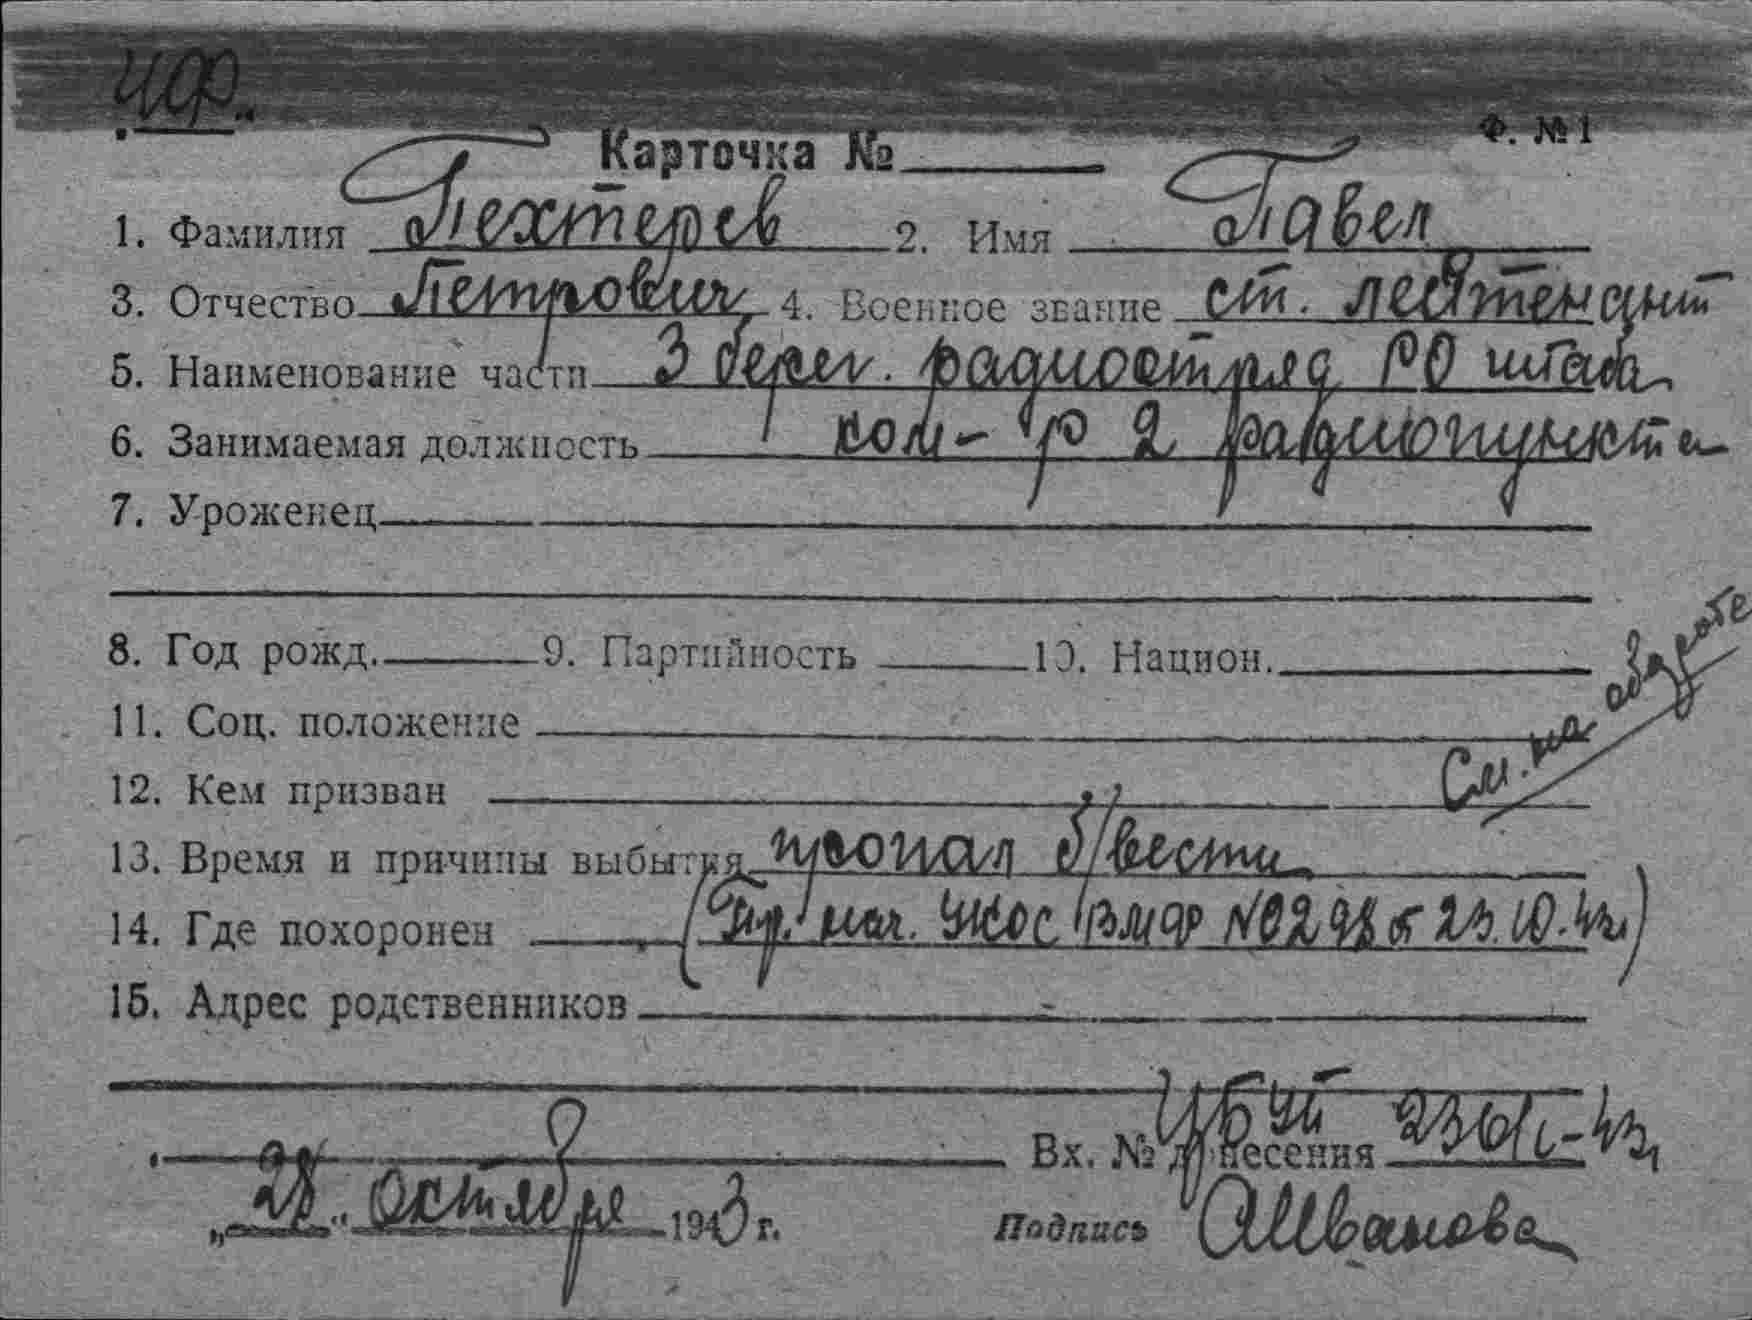 ЧФ.
Ф. № 1
Карточка №
1. Фамилия Пехтерев 2. Имя Павел
3. Отчество Петрович 4. Военное звание ст. лейтенант
5. Наименование части 3 берег. радиоотряд РО штаба
6. Занимаемая должность ком-р 2 радиопункта
7. Уроженец
8. Год рожд. 9. Партийность 10. Национ.
11. Соц. положение
См. на обороте
12. Кем призван
13. Время и причины выбытия пропал б/вести
14. Где похоронен (Пр. нач. УКОС ВМФ №0298 от 23.10.43г.)
15. Адрес родственников
Вх. № донесения
„28“ октября 1943 г. Подпись АИванова